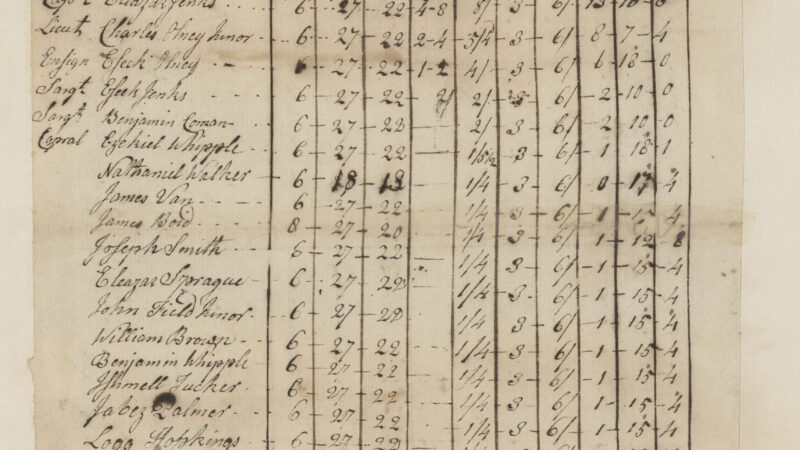 Eleazar Jenks - - 6 - 27 - 22 - 4 - 8 8/ - 3 - 6/ - 13 - 10 - 8
Lieut Charles Olney Junor - 6 - 27 - 22 2 - 4 - 5/4 - 3 - 6/ - 8 - 7 - 4
Ensign Eseck Olney - - 6 - 27 - 22 - 1 - 2 4/ - 3 - 6/ 6 - 18 - 0
Sargt Eseek Jenks - - 6 - 27 - 22 - 2/ - 3 - 6/ - 2 - 10 - 0
Sargt Benjamin Coman - 6 - 27 - 22 - 2/ - 3 - 6/ - 2 - 10 - 0
Copral Ezekiel Whipple - - 6 - 27 - 22 - 1/5½ - 3 - 6/ - 1 - 18 - 1
Nathaniel Walker - 6 - 18 - 13 - 1/4 - 3 - 6/ - 0 - 17 - 4
James Van - - - 6 - 27 - 22 - 1/4 - 3 - 6/ - 1 - 15 - 4
James Boid - - - 8 - 27 - 20 - 1/4 - 3 - 6/ - 1 - 12 - 8
Joseph Smith - - 6 - 27 - 22 - 1/4 - 3 - 6/ - 1 - 15 - 4
Eleazar Sprague - 6 - 27 - 22 - 1/4 - 3 - 6/ - 1 - 15 - 4
John Field Junor - - 6 - 27 - 22 - 1/4 - 3 - 6/ - 1 - 15 - 4
William Brown - - 6 - 27 - 22 - 1/4 - 3 - 6/ - 1 - 15 - 4
Benjamin Whipple - 6 - 27 - 22 - 1/4 - 3 - 6/ - 1 - 15 - 4
Ishmell Tucker - - 6 - 27 - 22 - 1/4 - 3 - 6/ - 1 - 15 - 4
Jabez Palmer - - - 6 - 27 - 22 - 1/4 - 3 - 6/ - 1 - 15 - 4
Logg Hopkings - - 6 - 27 - 22